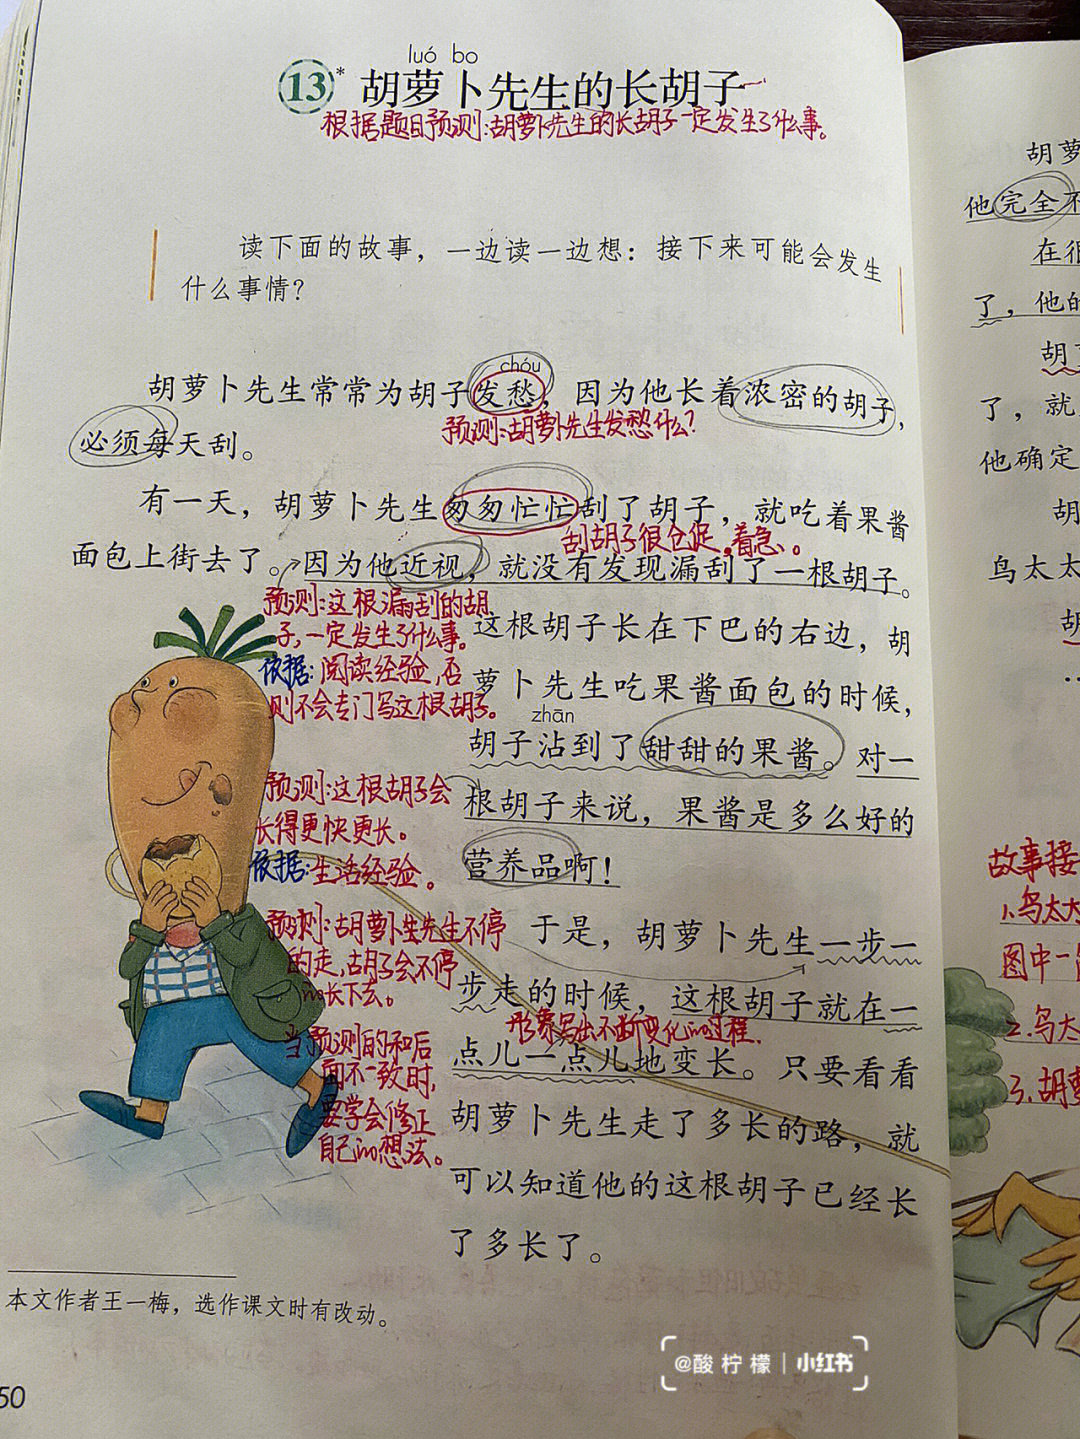 luó bo
13* 胡萝卜先生的长胡子
根据题目预测:胡萝卜先生的长胡子一定发生了什么事。
读下面的故事，一边读一边想：接下来可能会发生
什么事情？
chóu
胡萝卜先生常常为胡子发愁，因为他长着浓密的胡子，
预测:胡萝卜先生发愁什么?
必须每天刮。
有一天，胡萝卜先生匆匆忙忙刮了胡子，就吃着果酱
刮胡子很仓促,着急。
面包上街去了。因为他近视，就没有发现漏刮了一根胡子。
预测:这根漏刮的胡
子,一定发生了什么事。
依据:阅读经验,否
则不会专门写这根胡子。
这根胡子长在下巴的右边，胡
萝卜先生吃果酱面包的时候，
zhān
胡子沾到了甜甜的果酱。对一
根胡子来说，果酱是多么好的
营养品啊！
预测:这根胡子会
长得更快更长。
依据:生活经验。
预测:胡萝卜先生不停
的走,胡子会不停
的长下去。
于是，胡萝卜先生一步一
步走的时候，这根胡子就在一
点儿一点儿地变长。只要看看
胡萝卜先生走了多长的路，就
可以知道他的这根胡子已经长
了多长了。
当预测的和后
面不一致时,
要学会修正
自己的想法。
本文作者王一梅，选作课文时有改动。
50
胡萝
他完全不
在很
了，他的
胡
了，就
他确定
胡
鸟太太
胡
故事接
1.鸟太太
图中一
2.鸟太
3.胡萝
@酸柠檬 | 小红书